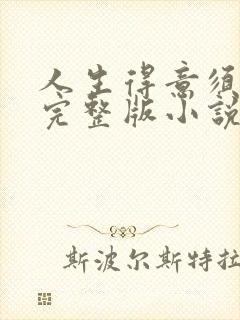 人生得意须
完整版小説
斯波尔斯特拉